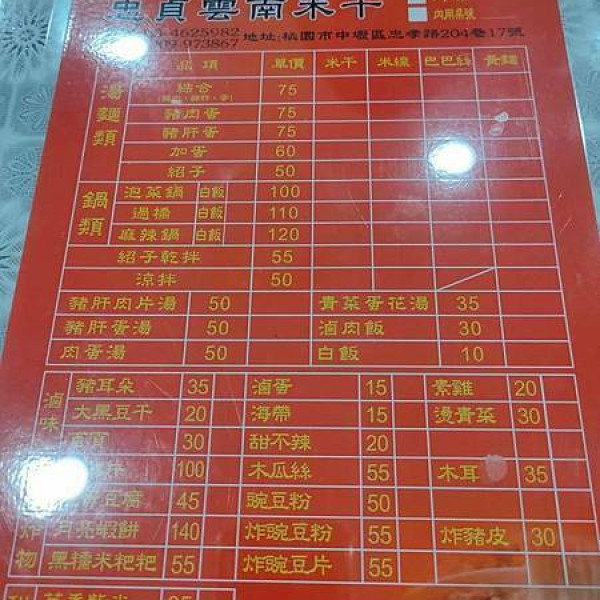 忠貞雲南米干
內用桌號
03-4625982 地址:桃園市中壢區忠孝路204巷17號
09-973867
品項 單價 米干 米線 巴巴絲 黃麵
湯麵類
綜合 75
豬肉蛋 75
豬肝蛋 75
加蛋 60
紹子 50
鍋類
泡菜鍋 白飯 100
過橋 白飯 110
麻辣鍋 白飯 120
紹子乾拌 55
涼拌 50
豬肝肉片湯 50 青菜蛋花湯 35
豬肝蛋湯 50 滷肉飯 30
肉蛋湯 50 白飯 10
滷味
豬耳朵 35 滷蛋 15 素雞 20
大黑豆干 20 海帶 15 燙青菜 30
30 甜不辣 20
100 木瓜絲 55 木耳 35
豆腐 45 豌豆粉 50
炸物
月亮蝦餅 140 炸豌豆粉 55 炸豬皮 30
黑糯米粑粑 55 炸豌豆片 55